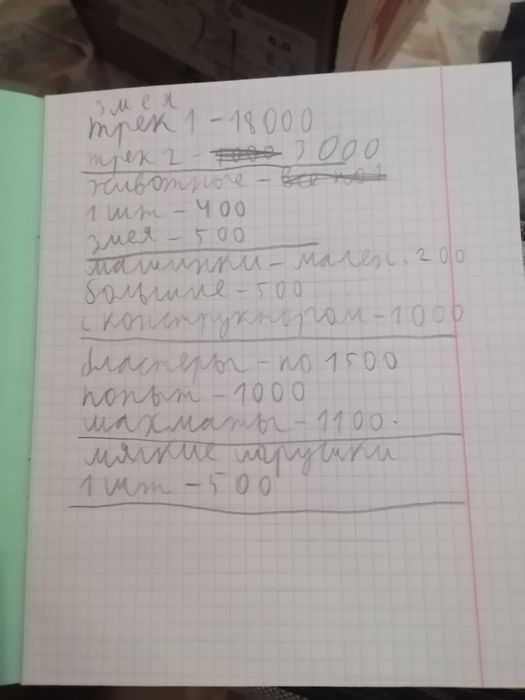 змея
трек 1 - 18000
трек 2 - 3000
животные -
1 шт - 400
змея - 500
машинки - мален. 200
большие - 500
с конструктором - 1000
бластеры - по 1500
попыт - 1000
шахматы - 1100.
мягкие игрушки
1 шт - 500